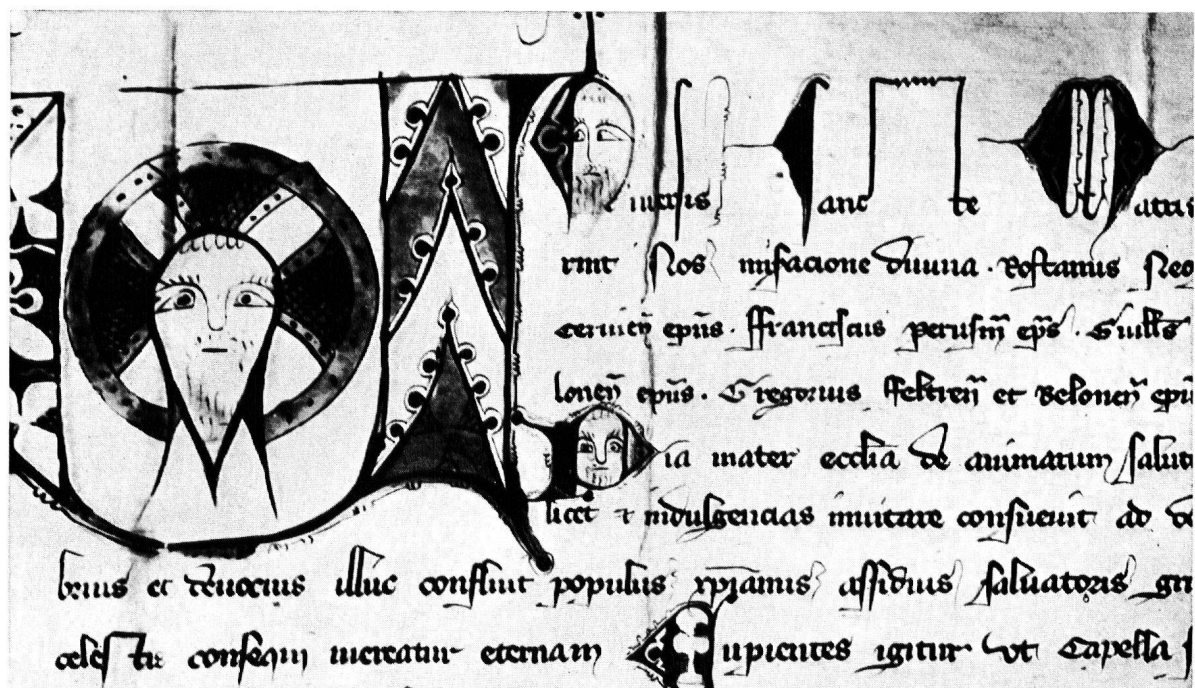 UNIVERSIS SANCTE MATRIS
runt Nos miseracione divina . Rostanus Neo
cernien̄ ep̄us . ffranciscus perusin̄ ep̄s . Guills
lonen̄ ep̄us . Gregorius ffeltren̄ et Belonen̄ ep̄u
Pia mater ecclīa de animarum salute
licet et indulgencias invitare consuevit ad de
brius et devocius illuc confluit populus xp̄ianus assiduis salvatoris gr
celestis consequi mereatur eternam Cupientes igitur vt Capella s